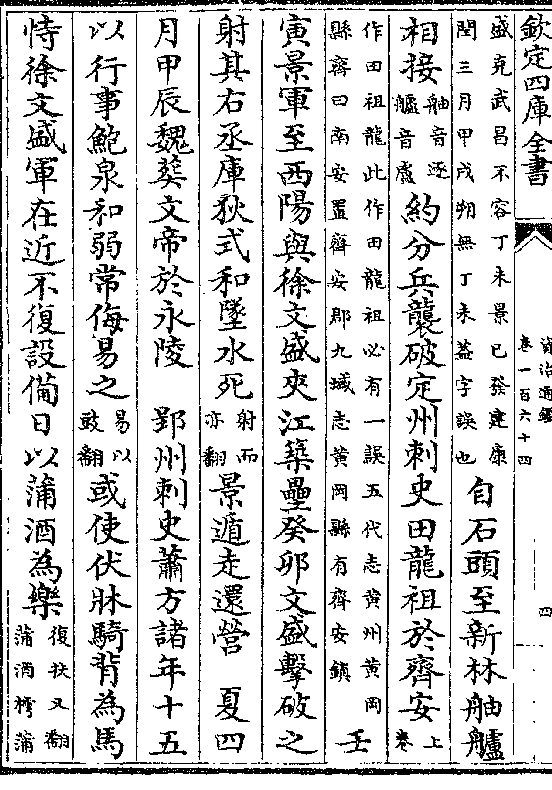 欽定四庫全書 資治通鑑 卷一百六十四 四
盛克武昌不容丁未景已發建康閏三月甲戌朔無丁未蓋字誤也自石頭至新林舳艫
相接舳音逐艫音盧約分兵襲破定州刺史田龍祖於齊安上卷
作田祖龍此作田龍祖必有一誤五代志黃州黃岡縣齊曰南安置齊安郡九域志黃岡縣有齊安鎮 壬
寅景軍至西陽與徐文盛夾江築壘癸卯文盛擊破之
射其右丞庫狄式和墜水死射而亦翻景遁走還營 夏四
月甲辰魏葬文帝於永陵 郢州刺史蕭方諸年十五
以行事鮑泉和弱常侮易之易以豉翻或使伏牀騎背為馬
恃徐文盛軍在近不復設備日以蒲酒為樂復扶又翻蒲酒樗蒲